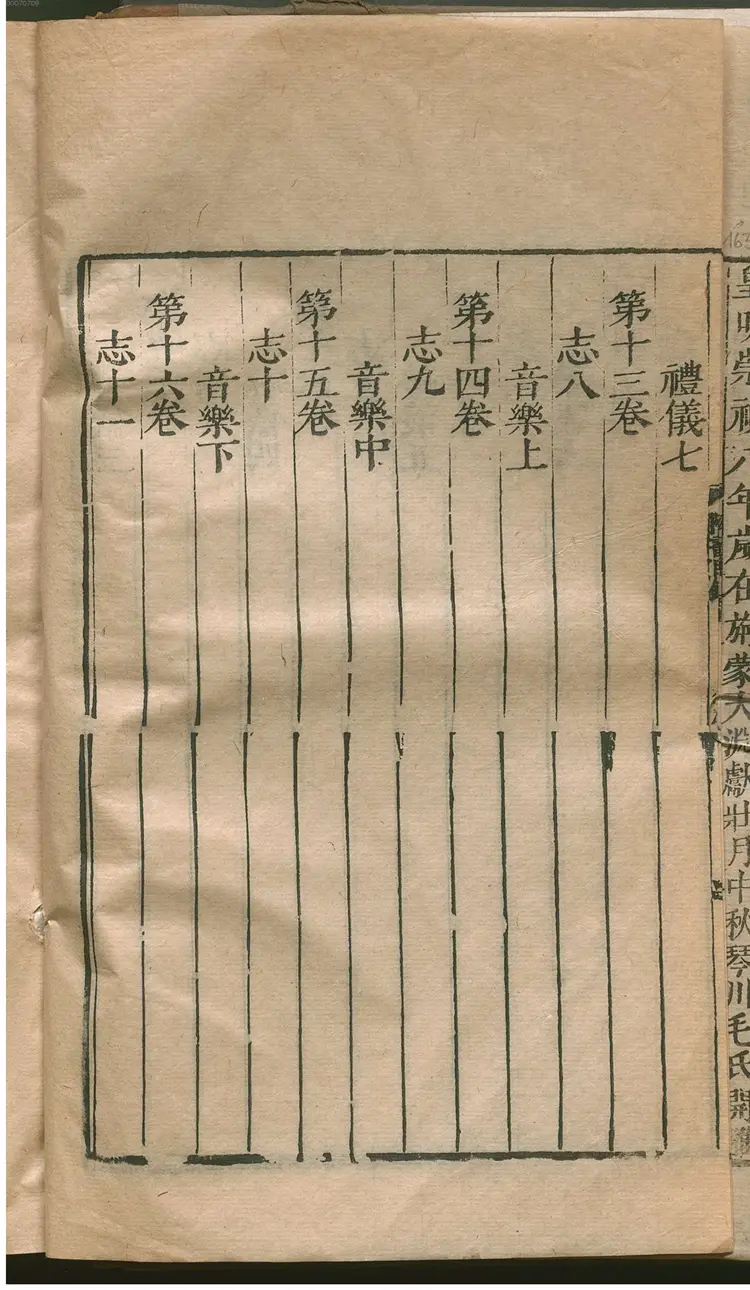 皇明崇禎八年歲在旃蒙大淵獻壯月中秋琴川毛氏開
禮儀七
第十三卷
志八
音樂上
第十四卷
志九
音樂中
第十五卷
志十
音樂下
第十六卷
志十一
00070709